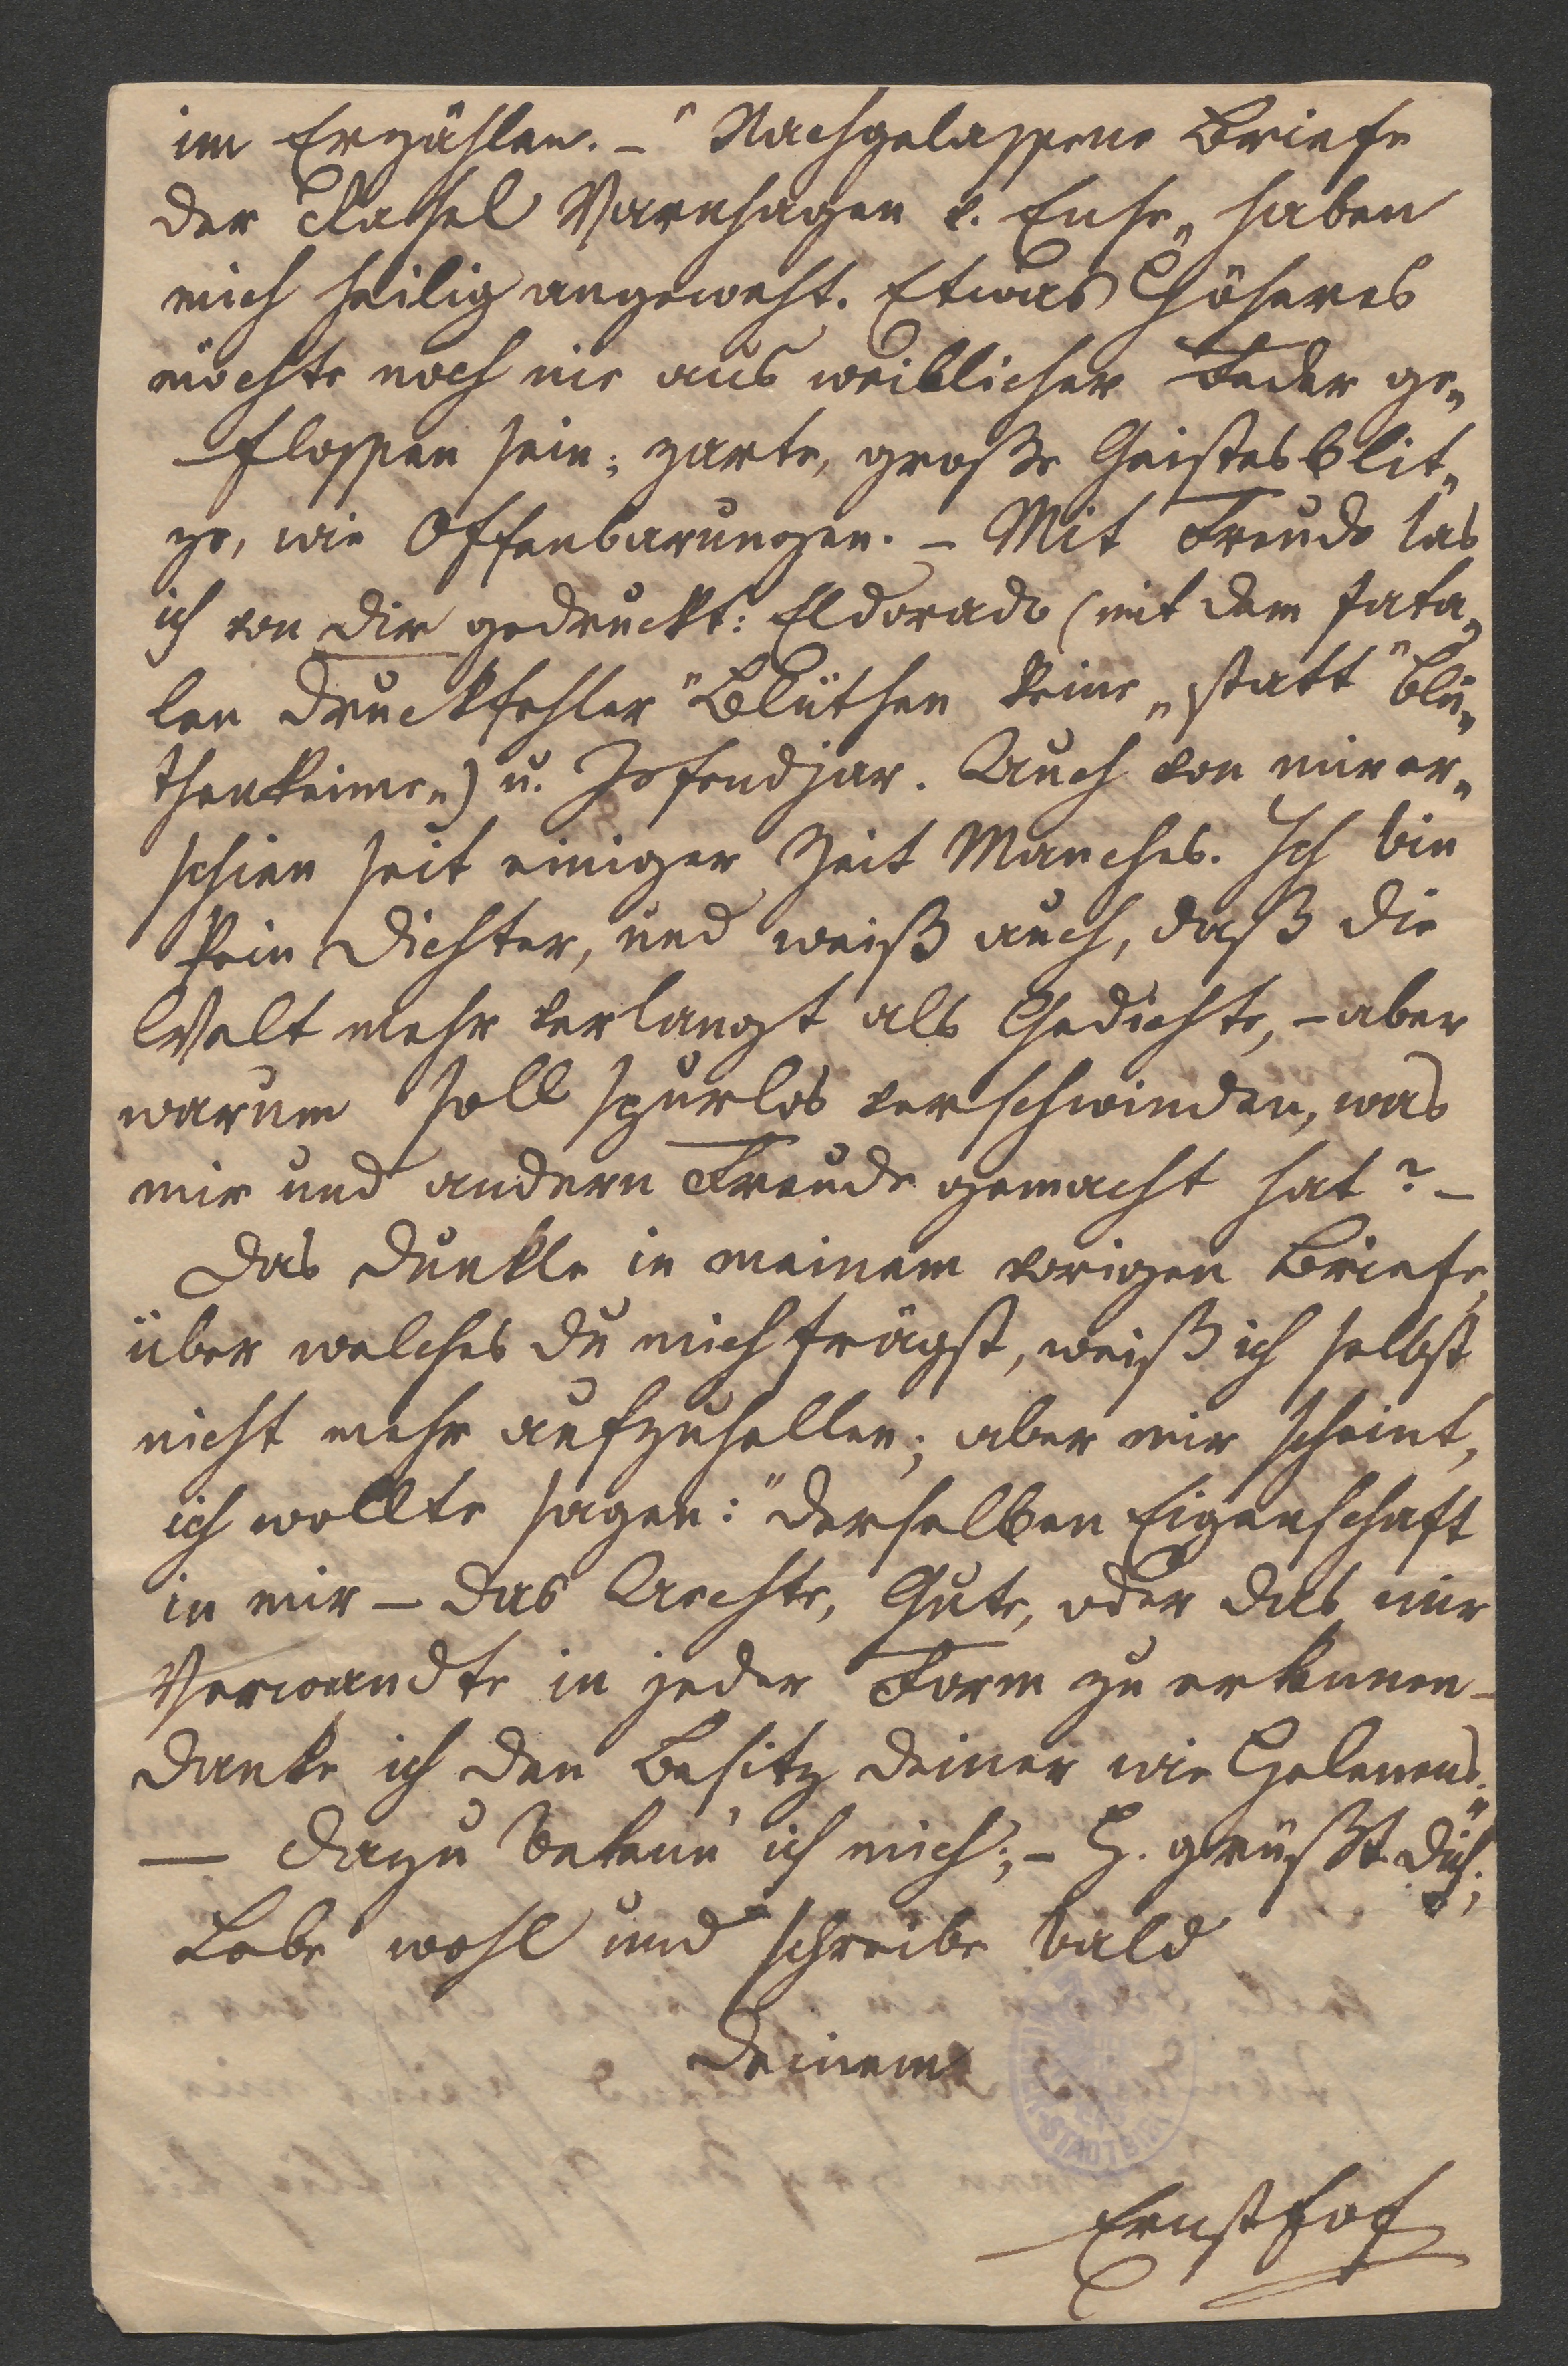 im Erzählen. – "Nachgelassene Briefe
der Rahel Varnhagen v. Ense„ haben
mich heilig angeweht. Etwas Höheres
möchte noch nie aus weiblicher Feder ge„
flossen sein; zarte, große Geistesblit„
ze, wie Offenbarungen. – Mit Freude las
ich von Dir gedruckt: Eldorado (mit dem fata„
len Druckfehler "Blüthen keine„ statt "Blü„
thenkeime„) u. Isfendjar. Auch von mir er„
schien seit einiger Zeit Manches. Ich bin
kein Dichter, und weiß auch, daß die
Welt mehr verlangt als Gedichte, – aber
warum soll spurlos verschwinden, was
mir und andern Freude gemacht hat? –
Das Dunkle in meinem vorigen Briefe,
über welches Du mich frägst, weiß ich selbst
nicht mehr aufzuhellen; aber mir scheint,
ich wollte sagen: "derselben Eigenschaft
in mir – das Aechte, Gute, oder das mir
Verwandte in jeder Form zu erkennen –
danke ich den Besitz deiner wie Helenens.„
– Dazu bekenn' ich mich; – H. grüßt Dich;
Lebe wohl und schreibe bald
Deinem
Ernst